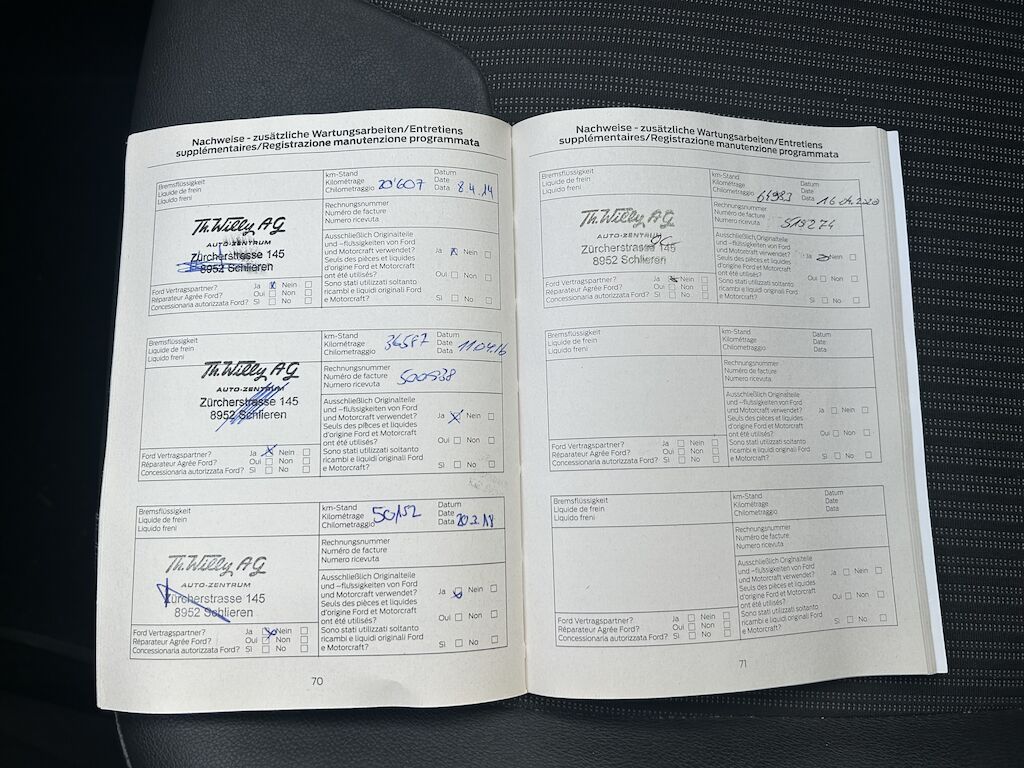 Nachweise - zusätzliche Wartungsarbeiten/Entretiens
supplémentaires/Registrazione manutenzione programmata
Bremsflüssigkeit
Liquide de frein
Liquido freni
km-Stand
Kilométrage
Chilometraggio
20'607
Datum
Date
Data
8 4. 14
Rechnungsnummer
Numéro de facture
Numero ricevuta
Th. Willy AG
AUTO-ZENTRUM
Zürcherstrasse 145
8952 Schlieren
Ausschließlich Originalteile
und –flüssigkeiten von Ford
und Motorcraft verwendet?
Ja Nein
Seuls des pièces et liquides
d'origine Ford et Motorcraft
ont été utilisés?
Oui Non
Sono stati utilizzati soltanto
ricambi e liquidi originali Ford
e Motorcraft?
Sì No
Ford Vertragspartner? Ja Nein
Réparateur Agrée Ford? Oui Non
Concessionaria autorizzata Ford? Sì No
Bremsflüssigkeit
Liquide de frein
Liquido freni
km-Stand
Kilométrage
Chilometraggio
36587
Datum
Date
Data
11.04.16
Rechnungsnummer
Numéro de facture
Numero ricevuta
500938
Th. Willy AG
AUTO-ZENTRUM
Zürcherstrasse 145
8952 Schlieren
Ausschließlich Originalteile
und –flüssigkeiten von Ford
und Motorcraft verwendet?
Ja Nein
Seuls des pièces et liquides
d'origine Ford et Motorcraft
ont été utilisés?
Oui Non
Sono stati utilizzati soltanto
ricambi e liquidi originali Ford
e Motorcraft?
Sì No
Ford Vertragspartner? Ja Nein
Réparateur Agrée Ford? Oui Non
Concessionaria autorizzata Ford? Sì No
Bremsflüssigkeit
Liquide de frein
Liquido freni
km-Stand
Kilométrage
Chilometraggio
50152
Datum
Date
Data
20.2.18
Rechnungsnummer
Numéro de facture
Numero ricevuta
Th. Willy AG
AUTO-ZENTRUM
Zürcherstrasse 145
8952 Schlieren
Ausschließlich Originalteile
und –flüssigkeiten von Ford
und Motorcraft verwendet?
Ja Nein
Seuls des pièces et liquides
d'origine Ford et Motorcraft
ont été utilisés?
Oui Non
Sono stati utilizzati soltanto
ricambi e liquidi originali Ford
e Motorcraft?
Sì No
Ford Vertragspartner? Ja Nein
Réparateur Agrée Ford? Oui Non
Concessionaria autorizzata Ford? Sì No
70
Nachweise - zusätzliche Wartungsarbeiten/Entretiens
supplémentaires/Registrazione manutenzione programmata
Bremsflüssigkeit
Liquide de frein
Liquido freni
km-Stand
Kilométrage
Chilometraggio
64983
Datum
Date
Data
16.04.2020
Rechnungsnummer
Numéro de facture
Numero ricevuta
519274
Th. Willy AG
AUTO-ZENTRUM
Zürcherstrasse 145
8952 Schlieren
Ausschließlich Originalteile
und –flüssigkeiten von Ford
und Motorcraft verwendet?
Ja Nein
Seuls des pièces et liquides
d'origine Ford et Motorcraft
ont été utilisés?
Oui Non
Sono stati utilizzati soltanto
ricambi e liquidi originali Ford
e Motorcraft?
Sì No
Ford Vertragspartner? Ja Nein
Réparateur Agrée Ford? Oui Non
Concessionaria autorizzata Ford? Sì No
Bremsflüssigkeit
Liquide de frein
Liquido freni
km-Stand
Kilométrage
Chilometraggio
Datum
Date
Data
Rechnungsnummer
Numéro de facture
Numero ricevuta
Ausschließlich Originalteile
und –flüssigkeiten von Ford
und Motorcraft verwendet?
Ja Nein
Seuls des pièces et liquides
d'origine Ford et Motorcraft
ont été utilisés?
Oui Non
Sono stati utilizzati soltanto
ricambi e liquidi originali Ford
e Motorcraft?
Sì No
Ford Vertragspartner? Ja Nein
Réparateur Agrée Ford? Oui Non
Concessionaria autorizzata Ford? Sì No
Bremsflüssigkeit
Liquide de frein
Liquido freni
km-Stand
Kilométrage
Chilometraggio
Datum
Date
Data
Rechnungsnummer
Numéro de facture
Numero ricevuta
Ausschließlich Originalteile
und –flüssigkeiten von Ford
und Motorcraft verwendet?
Ja Nein
Seuls des pièces et liquides
d'origine Ford et Motorcraft
ont été utilisés?
Oui Non
Sono stati utilizzati soltanto
ricambi e liquidi originali Ford
e Motorcraft?
Sì No
Ford Vertragspartner? Ja Nein
Réparateur Agrée Ford? Oui Non
Concessionaria autorizzata Ford? Sì No
71